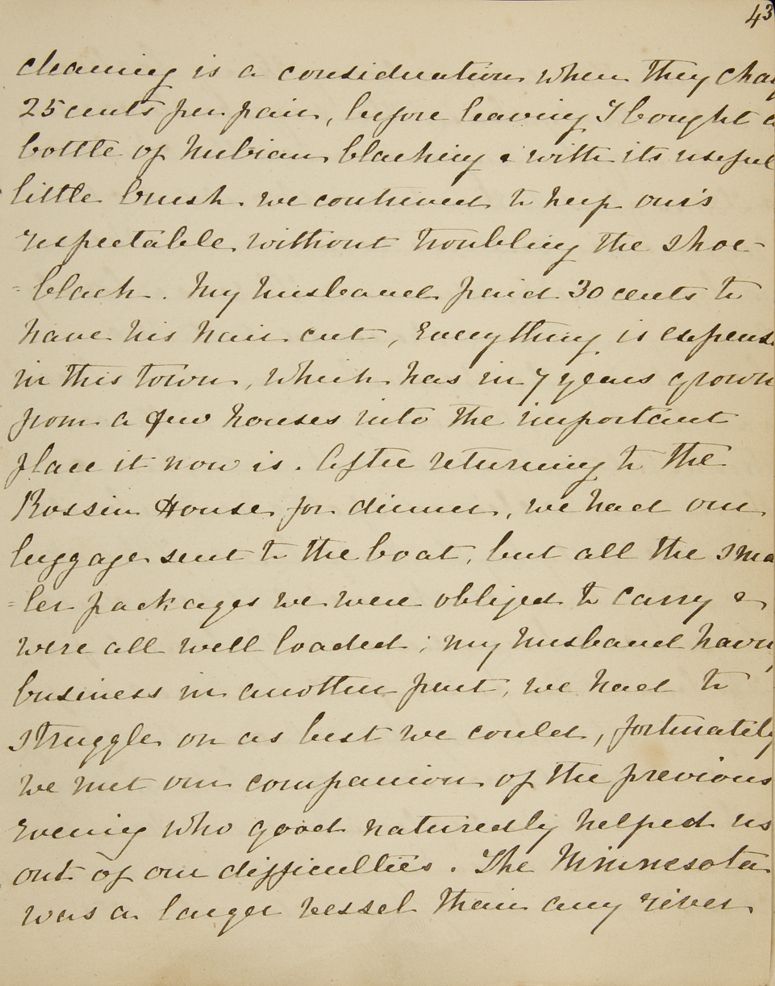 43
cleaning is a consideration when they char
25 cents per pair, before leaving I bought a
bottle of Nubian blacking & with its useful
little brush we contrived to keep our's
respectable without troubling the shoe-
=black. My husband paid 30 cents to
have his hair cut, Everything is expens
in this town, which has in 7 years grown
from a few houses into the important
place it now is. After returning to the
Rossin House for dinner, we had our
luggage sent to the boat, but all the smal
=ler packages we were obliged to carry &
were all well loaded; my husband havin
business in another part, we had to
struggle on as best we could, fortunately
we met our companion of the previous
Evening who good naturedly helped us
out of our difficulties. The Minnesota
was a larger vessel than any river